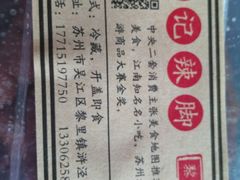 记辣脚
黎
中央二套消费主张美食地图推
美食，江南知名小吃、苏州
游商品大赛金奖。
式：冷藏、开盖即食
苏州市吴江区黎里镇浒泾
17715197750 13306258